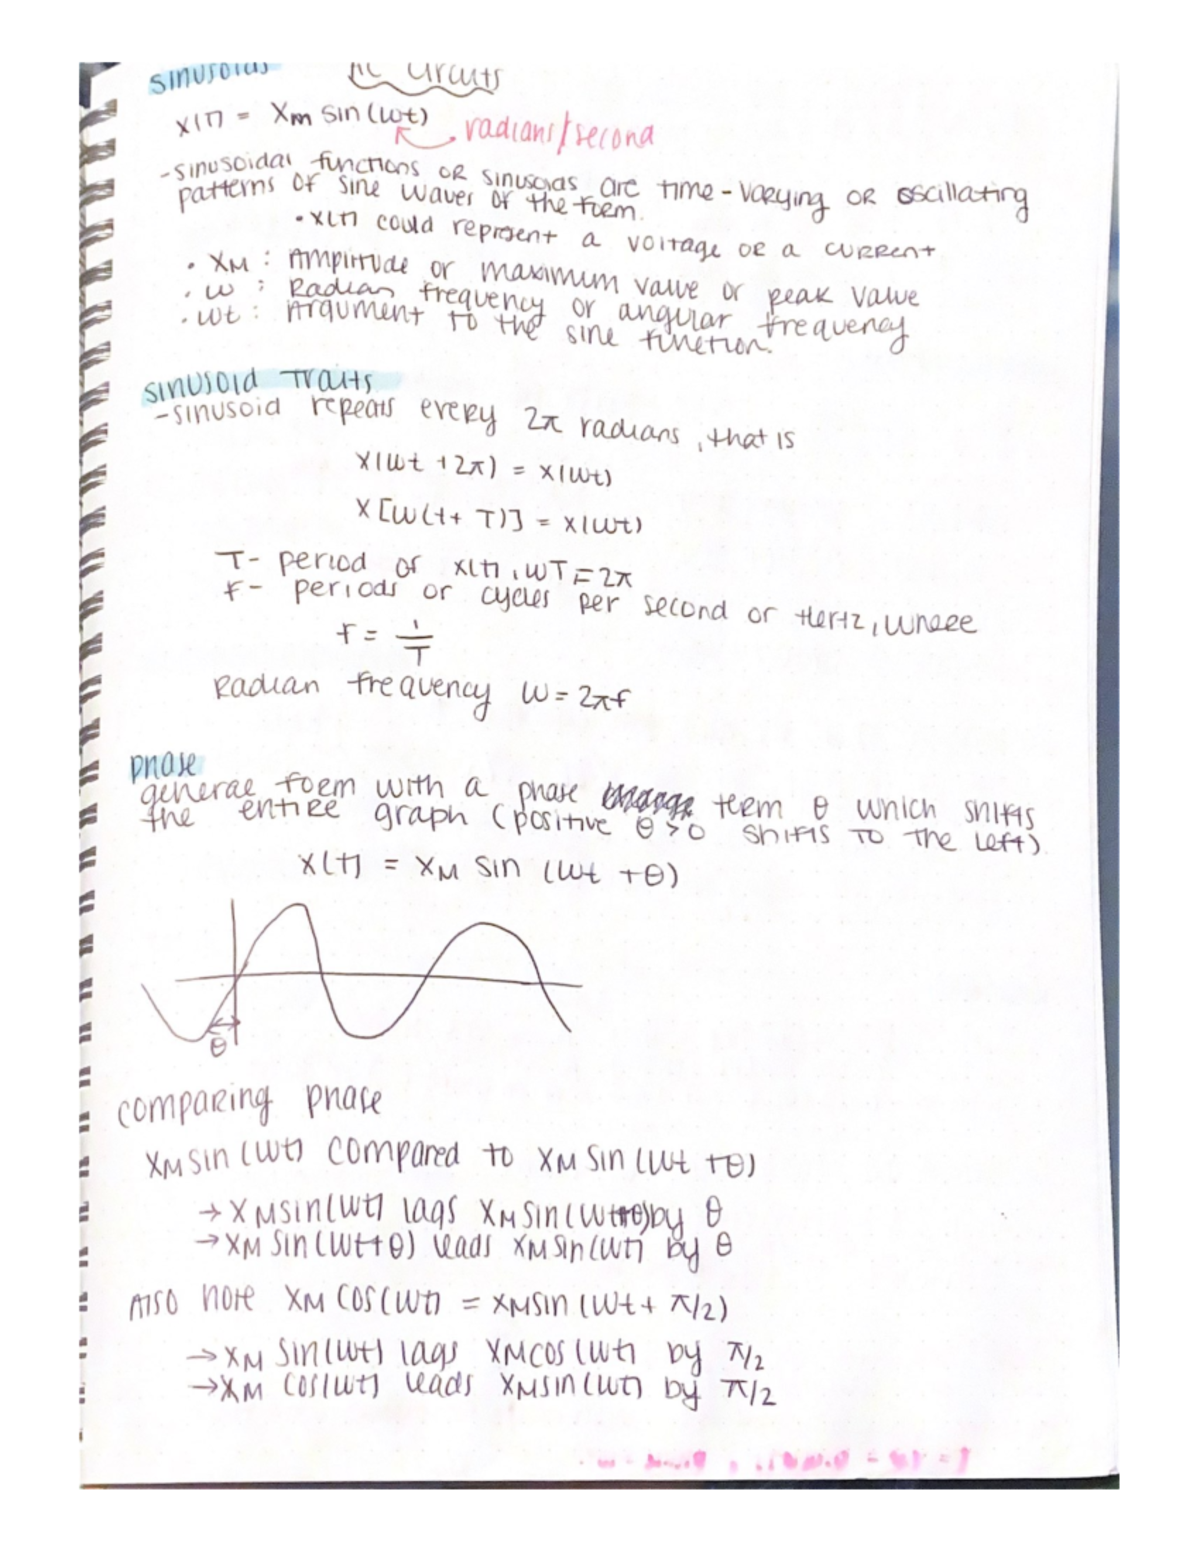 sinusoids AC Circuits
x(t) = XM sin(ωt)
radians/second
- sinusoidal functions OR sinusoids are time-varying OR oscillating
patterns of sine waves of the form.
• x(t) could represent a voltage or a current
• XM: Amplitude or maximum value or peak value
• ω: Radian frequency or angular frequency
• ωt: Argument to the sine function.
sinusoid traits
- sinusoid repeats every 2π radians, that is
x(ωt + 2π) = x(ωt)
x[ω(t + T)] = x(ωt)
T - period of x(t), ωT = 2π
F - periods or cycles per second or Hertz, where
f = 1/T
Radian frequency ω = 2πf
phase
general form with a phase term θ which shifts
the entire graph (positive θ > 0 shifts to the left).
x(t) = XM sin (ωt + θ)
θ
comparing phase
XM sin(ωt) compared to XM sin(ωt + θ)
→ XM sin(ωt) lags XM sin(ωt + θ) by θ
→ XM sin(ωt + θ) leads XM sin(ωt) by θ
Also note XM cos(ωt) = XM sin(ωt + π/2)
→ XM sin(ωt) lags XM cos(ωt) by π/2
→ XM cos(ωt) leads XM sin(ωt) by π/2